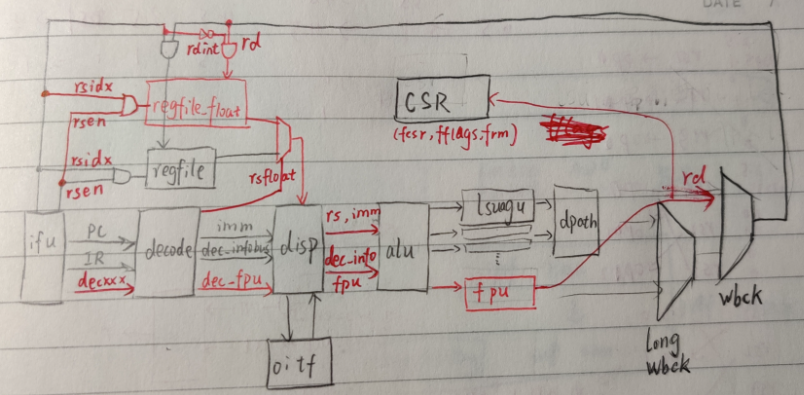 DATE
rdint
rd
rsidx
rsen
regfile_float
CSR
(fcsr, fflags, frm)
rsidx
rsen
regfile
rsfloat
ifu
PC
IR
decxxx
decode
imm
dec_infobus
dec_fpu
disp
rs, imm
dec_info
fpu
alu
lsuagu
dpath
fpu
rd
long
wbck
wbck
oitf